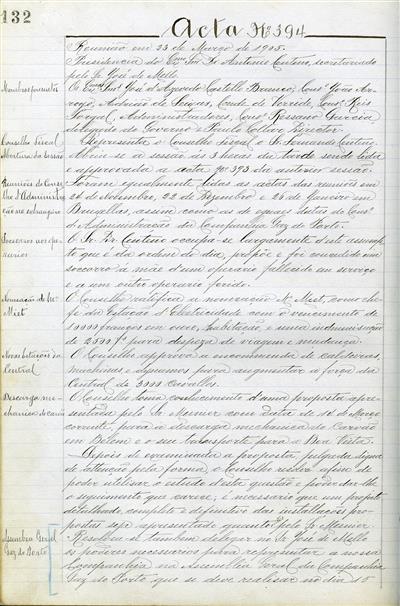 132
Acta Nº 394
Reunião em 23 de Março de 1905.
Presidencia do Exmo Snr Dr Antonio Centeno, secretariado
pelo Sr José de Mello
Membros presentes
O Exmos Snrs José d'Azevedo Castello Branco, Consº João Ar-
royo, de Seigas, Conde de Verride, Consº Reis
Torgal, Administradores, Consº Rossano Garcia
delegado do Governo e Paulo Director.
Conselho Fiscal
Representa o Conselho Fiscal o Sr Fernando
Abertura da sessão
Abriu-se a sessão ás 3 horas da tarde sendo lida
e approvada a acta nº 393 da anterior sessão.
Reuniões do Conse-
lho d'Administra-
ção no estrangeiro
Foram egualmente lidas as actas das reuniões em
24 de Novembro, 22 de Dezembro e 28 de Janeiro em
Bruxellas, assim como as de eguaes datas do Consº
d'Administração da Companhia Gaz do Porto.
Soccorros aos ope-
rarios
O Sr Dr Centeno occupa-se largamente d'este assump-
to que é da ordem do dia, propõe e foi concedido um
soccorro á mãe d'um operario fallecido em serviço
e a um outro operario ferido.
Nomeação de Mr
Miet
O Conselho ratifica a nomeação de Mr Miet, como che-
fe da Estação d'Electricidade com o vencimento de
10000 francos em ouro, habitação, e uma indemnisação
de 2500 fs para despeza de viagem e mudança.
Nova
Central
O Conselho approva a encommenda de caldeiras,
machinas e dynamos para augmentar a força da
Central de 3000 Cavallos.
Descarga me-
chanica do carvão
O Conselho toma conhecimento d'uma proposta apre-
sentada pelo Sr Meunier com data de 14 de Março
corrente, para a descarga mechanica do Carvão
em Belem e o seu transporte para a Boa Vista.
Depois de examinada a proposta, julgada digna
de attenção pela forma, o Conselho resolve afim de
poder utilisar o estudo d'esta questão e poder dar-lhe
o seguimento que carece; é necessario que um projecto
detalhado, completo e definitivo das installações pro-
postas seja apresentado quanto antes pelo Sr Meunier.
Assemblea Geral
Gaz do Porto
Resolveu-se tambem delegar no Sr José de Mello
os poderes necessarios para representar a nossa
Companhia na Assemblea Geral da Companhia
Gaz do Porto que se deve realisar no dia 15